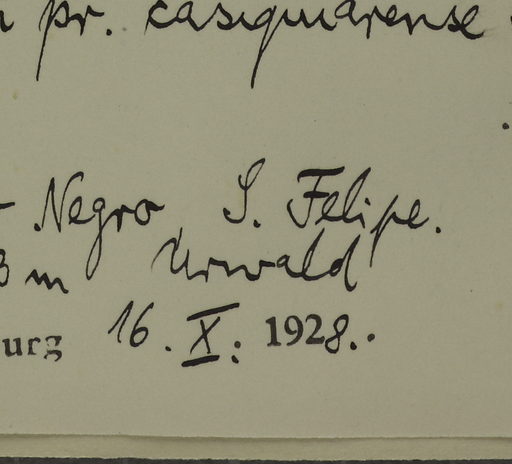 pr. casiquiarense
Negro, S. Felipe.
3 m Urwald
urg 16. X. 1928.